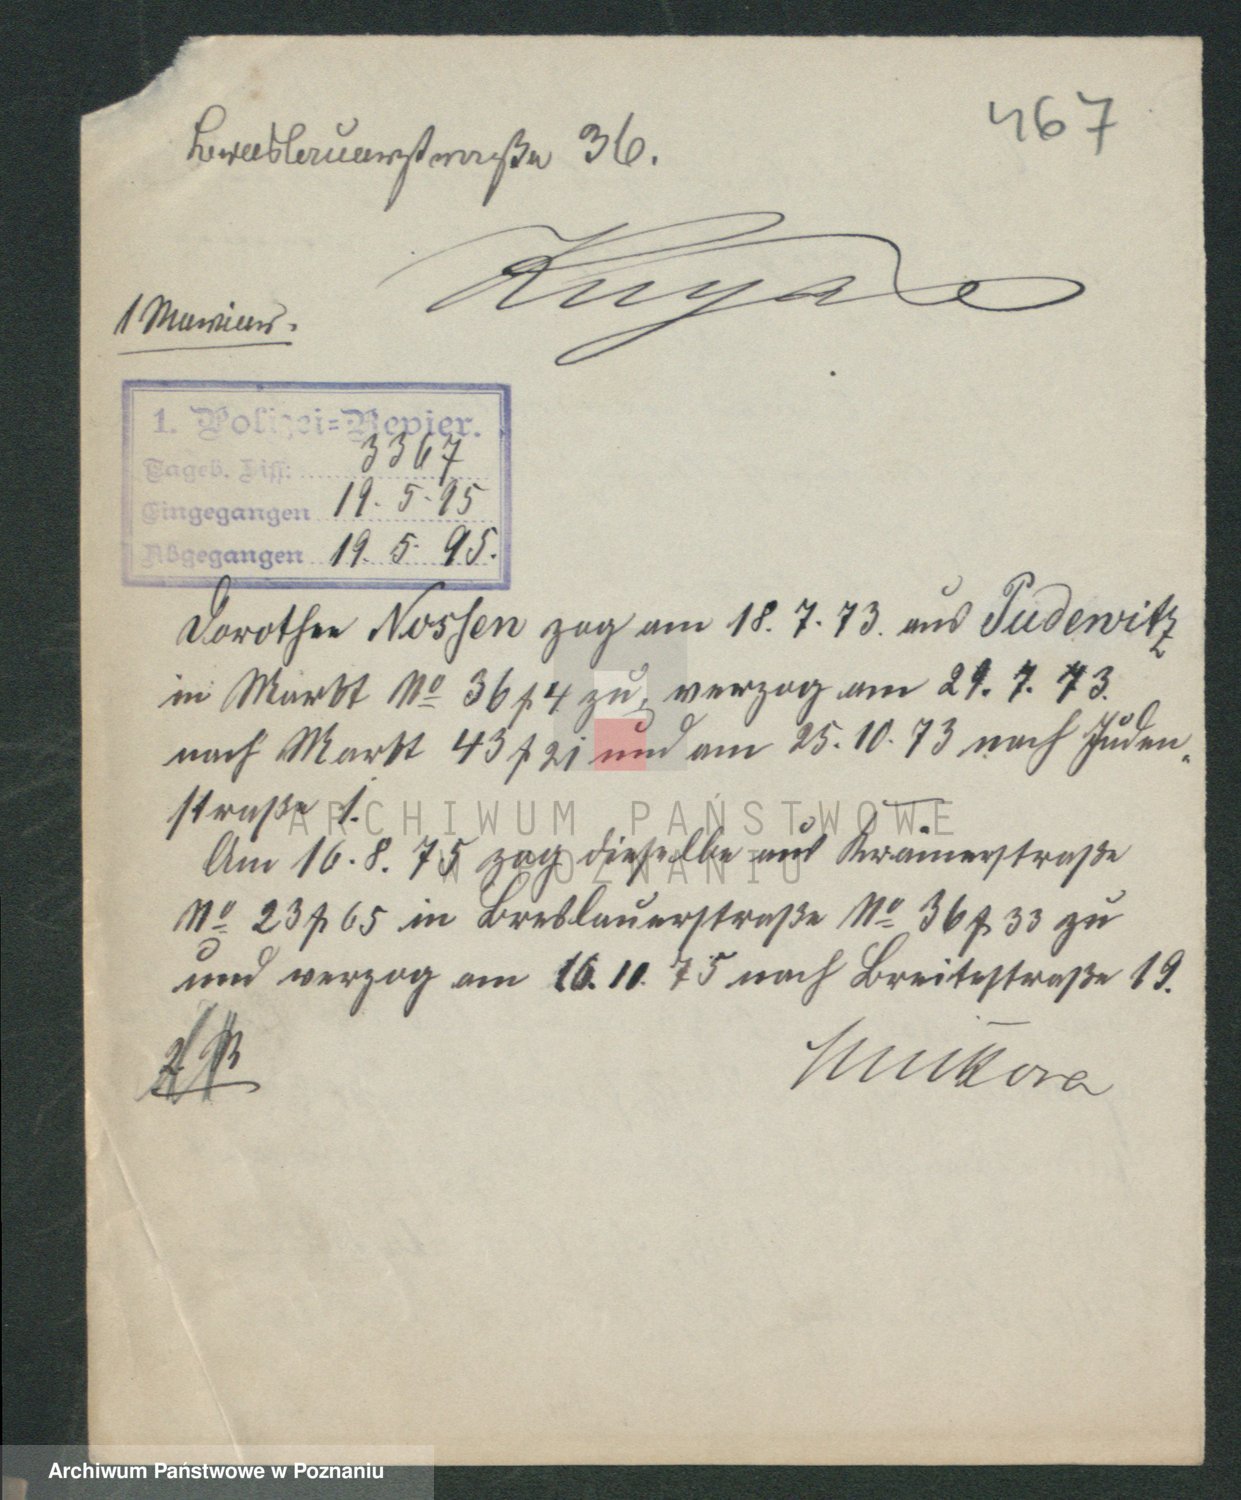 467
Breslauerstraße 36.
1 Revier.
1. Polizei=Revier.
Tageb. Ziff: 3367
Eingegangen 19. 5. 95
Abgegangen 19. 5. 95.
Dorothea Nossen zog am 18. 7. 73. aus Pudewitz
in Markt No 36 f 4 zu, verzog am 29. 7. 73.
nach Markt 43 f 21 und am 25. 10. 73 nach Juden-
straße 1.
Am 16. 8. 75 zog dieselbe aus Krämerstraße
No 23 f 65 in Breslauerstraße No 36 f 33 zu
und verzog am 16. 10. 75 nach Breitestraße 19.
ARCHIWUM PAŃSTWOWE
W POZNANIU
Archiwum Państwowe w Poznaniu